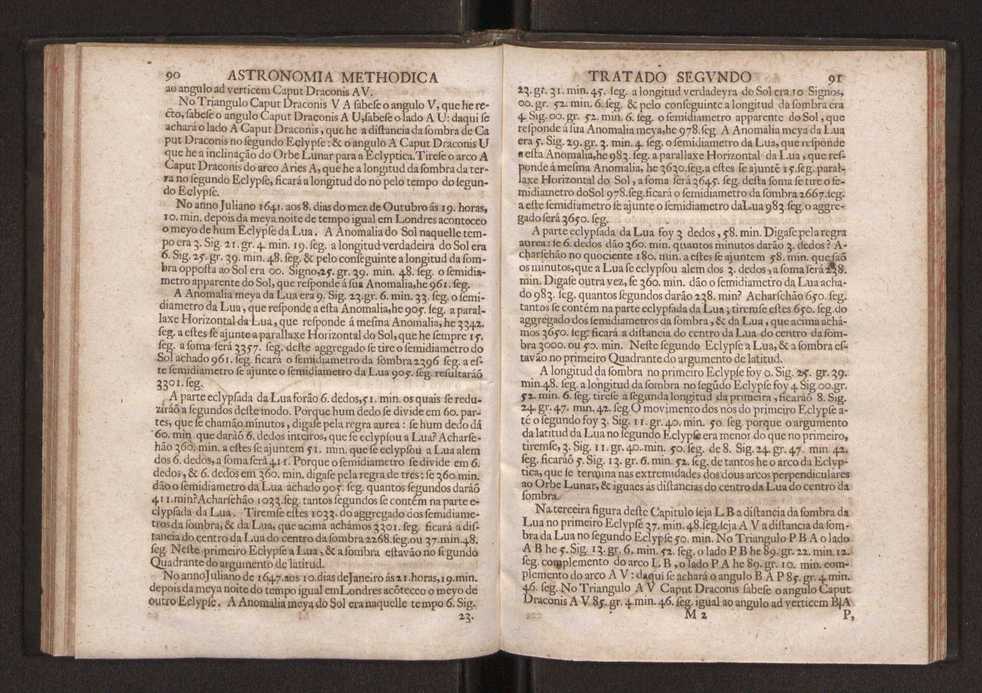 90 ASTRONOMIA METHODICA
ao angulo ad verticem Caput Draconis A V.
No Triangulo Caput Draconis V A sabese o angulo V, que he re-
cto, sabese o angulo Caput Draconis A U, sabese o lado A U: daqui se
achará o lado A Caput Draconis, que he a distancia da sombra de Ca
put Draconis no segundo Eclypse: & o angulo A Caput Draconis U
que he a inclinação do Orbe Lunar para a Eclyptica. Tirese o arco A
Caput Draconis do arco Aries A, que he a longitud da sombra da ter-
ra no segundo Eclypse, ficará a longitud do no pelo tempo do segun-
do Eclypse.
No anno Juliano 1641. aos 8. dias do mez de Outubro ás 19. horas,
10. min. depois da meya noite de tempo igual em Londres aconteceo
o meyo de hum Eclypse da Lua. A Anomalia do Sol naquelle tem-
po era 3. Sig. 21. gr. 4. min. 19. seg. a longitud verdadeira do Sol era
6. Sig. 25. gr. 39. min. 48. seg. & pelo conseguinte a longitud da som-
bra opposta ao Sol era 00. Signo, 25. gr. 39. min. 48. seg. o semidia-
metro apparente do Sol, que responde á sua Anomalia, he 961. seg.
A Anomalia meya da Lua era 9. Sig. 23. gr. 6. min. 33. seg. o semi-
diametro da Lua, que responde a esta Anomalia, he 905. seg. a paral-
laxe Horizontal da Lua, que responde á mesma Anomalia, he 3342.
seg. a estes se ajunte a parallaxe Horizontal do Sol, que he sempre 15.
seg. a soma será 3357. seg. deste aggregado se tire o semidiametro do
Sol achado 961. seg. ficará o semidiametro da sombra 2396 seg. a es-
te semidiametro se ajunte o semidiametro da Lua 905. seg. resultaráõ
3301. seg.
A parte eclypsada da Lua forão 6. dedos, 51. min. os quais se redu-
ziráõ a segundos deste modo. Porque hum dedo se divide em 60. par-
tes, que se chamão minutos, digase pela regra aurea: se hum dedo dá
60. min. que daráõ 6. dedos inteiros, que se eclypsou a Lua? Acharse-
hão 360. min. a estes se ajuntem 51. min. que se eclypsou a Lua alem
dos 6. dedos, a soma será 411. Porque o semidiametro se divide em 6.
dedos, & 6. dedos em 360. min. digase pela regra de tres: se 360 min.
dão o semidiametro da Lua achado 905. seg. quantos segundos daráõ
411. min? Acharsehão 1033. seg. tantos segundos se contém na parte e-
clypsada da Lua. Tiremse estes 1033. do aggregado dos semidiame-
tros da sombra, & da Lua, que acima achámos 3301. seg. ficará a dis-
tancia do centro da Lua do centro da sombra 2268. seg. ou 37. min. 48.
seg. Neste primeiro Eclypse a Lua, & a sombra estavão no segundo
Quadrante do argumento de latitud.
No anno Juliano de 1647. aos 10. dias de Janeiro ás 21. horas, 19. min.
depois da meya noite do tempo igual em Londres acõteceo o meyo de
outro Eclypse. A Anomalia meya do Sol era naquelle tempo 6. Sig.
23.
TRATADO SEGVNDO 91
23. gr. 31. min. 45. seg. a longitud verdadeyra do Sol era 10 Signos,
00. gr. 52. min. 6. seg. & pelo conseguinte a longitud da sombra era
4. Sig. 00. gr. 52. min. 6. seg. o semidiametro apparente do Sol, que
responde á sua Anomalia meya, he 978. seg. A Anomalia meya da Lua
era 5. Sig. 29. gr. 3. min. 4. seg. o semidiametro da Lua, que responde
a esta Anomalia, he 983. seg. a parallaxe Horizontal da Lua, que res-
ponde á mesma Anomalia, he 3630. seg. a estes se ajuntê 15. seg. paral-
laxe Horizontal do Sol, a soma será 3645. seg. desta soma se tire o se-
midiametro do Sol 978. seg. ficará o semidiametro da sombra 2667. seg.
a este semidiametro se ajunte o semidiametro da Lua 983 seg. o aggre-
gado será 3650. seg.
A parte eclypsada da Lua foy 3 dedos, 58. min. Digase pela regra
aurea: se 6. dedos dão 360. min. quantos minutos darão 3. dedos? A-
charsehão no quociente 180. min. a estes se ajuntem 58. min. que saõ
os minutos, que a Lua se eclypsou alem dos 3. dedos, a soma será 238.
min. Digase outra vez, se 360. min. dão o semidiametro da Lua acha-
do 983. seg. quantos segundos darão 238. min? Acharsehão 650. seg.
tantos se contèm na parte eclypsada da Lua; tiremse estes 650. seg. do
aggregado dos semidiametros da sombra, & da Lua, que acima achá-
mos 3650. seg. ficará a distancia do centro da Lua do centro da som-
bra 3000. ou 50. min. Neste segundo Eclypse a Lua, & a sombra es-
tavão no primeiro Quadrante do argumento de latitud.
A longitud da sombra no primeiro Eclypse foy 0. Sig. 25. gr. 39.
min. 48. seg. a longitud da sombra no segũdo Eclypse foy 4 Sig. 00. gr.
52. min. 6. seg. tirese a segunda longitud da primeira, ficaráõ 8. Sig.
24. gr. 47. min. 42. seg. O movimento dos nós do primeiro Eclypse a-
té o segundo foy 3. Sig. 11. gr. 40. min. 50. seg. porque o argumento
da latitud da Lua no segundo Eclypse era menor do que no primeiro,
tiremse, 3. Sig. 11. gr. 40. min. 50. seg. de 8. Sig. 24. gr. 47. min. 42.
seg. ficaráõ 5. Sig. 13. gr. 6. min. 52. seg. de tantos he o arco da Eclyp-
tica, que se termina nas extremidades dos dous arcos perpendiculares
ao Orbe Lunar, & iguaes ás distancias do centro da Lua do centro da
sombra.
Na terceira figura deste Capitulo seja L B a distancia da sombra da
Lua no primeiro Eclypse 37. min. 48. seg. seja A V a distancia da som-
bra da Lua no segundo Eclypse 50. min. No Triangulo P B A o lado
A B he 5. Sig. 13. gr. 6. min. 52. seg. o lado P B he 89. gr. 22. min. 12.
seg. complemento do arco L B, o lado P A he 89. gr. 10. min. com-
plemento do arco A V: daqui se achará o angulo B A P 85. gr. 4. min.
46. seg. No Triangulo A V Caput Draconis sabese o angulo Caput
Draconis A V 85. gr. 4 min. 46. seg. igual ao angulo ad verticem B A
M 2 P,